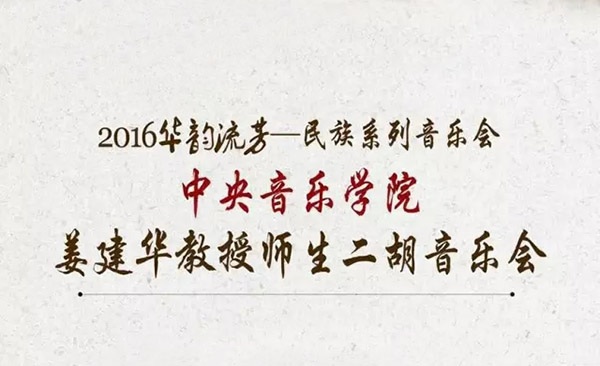 2016华韵流芳—民族系列音乐会
中央音乐学院
姜建华教授师生二胡音乐会